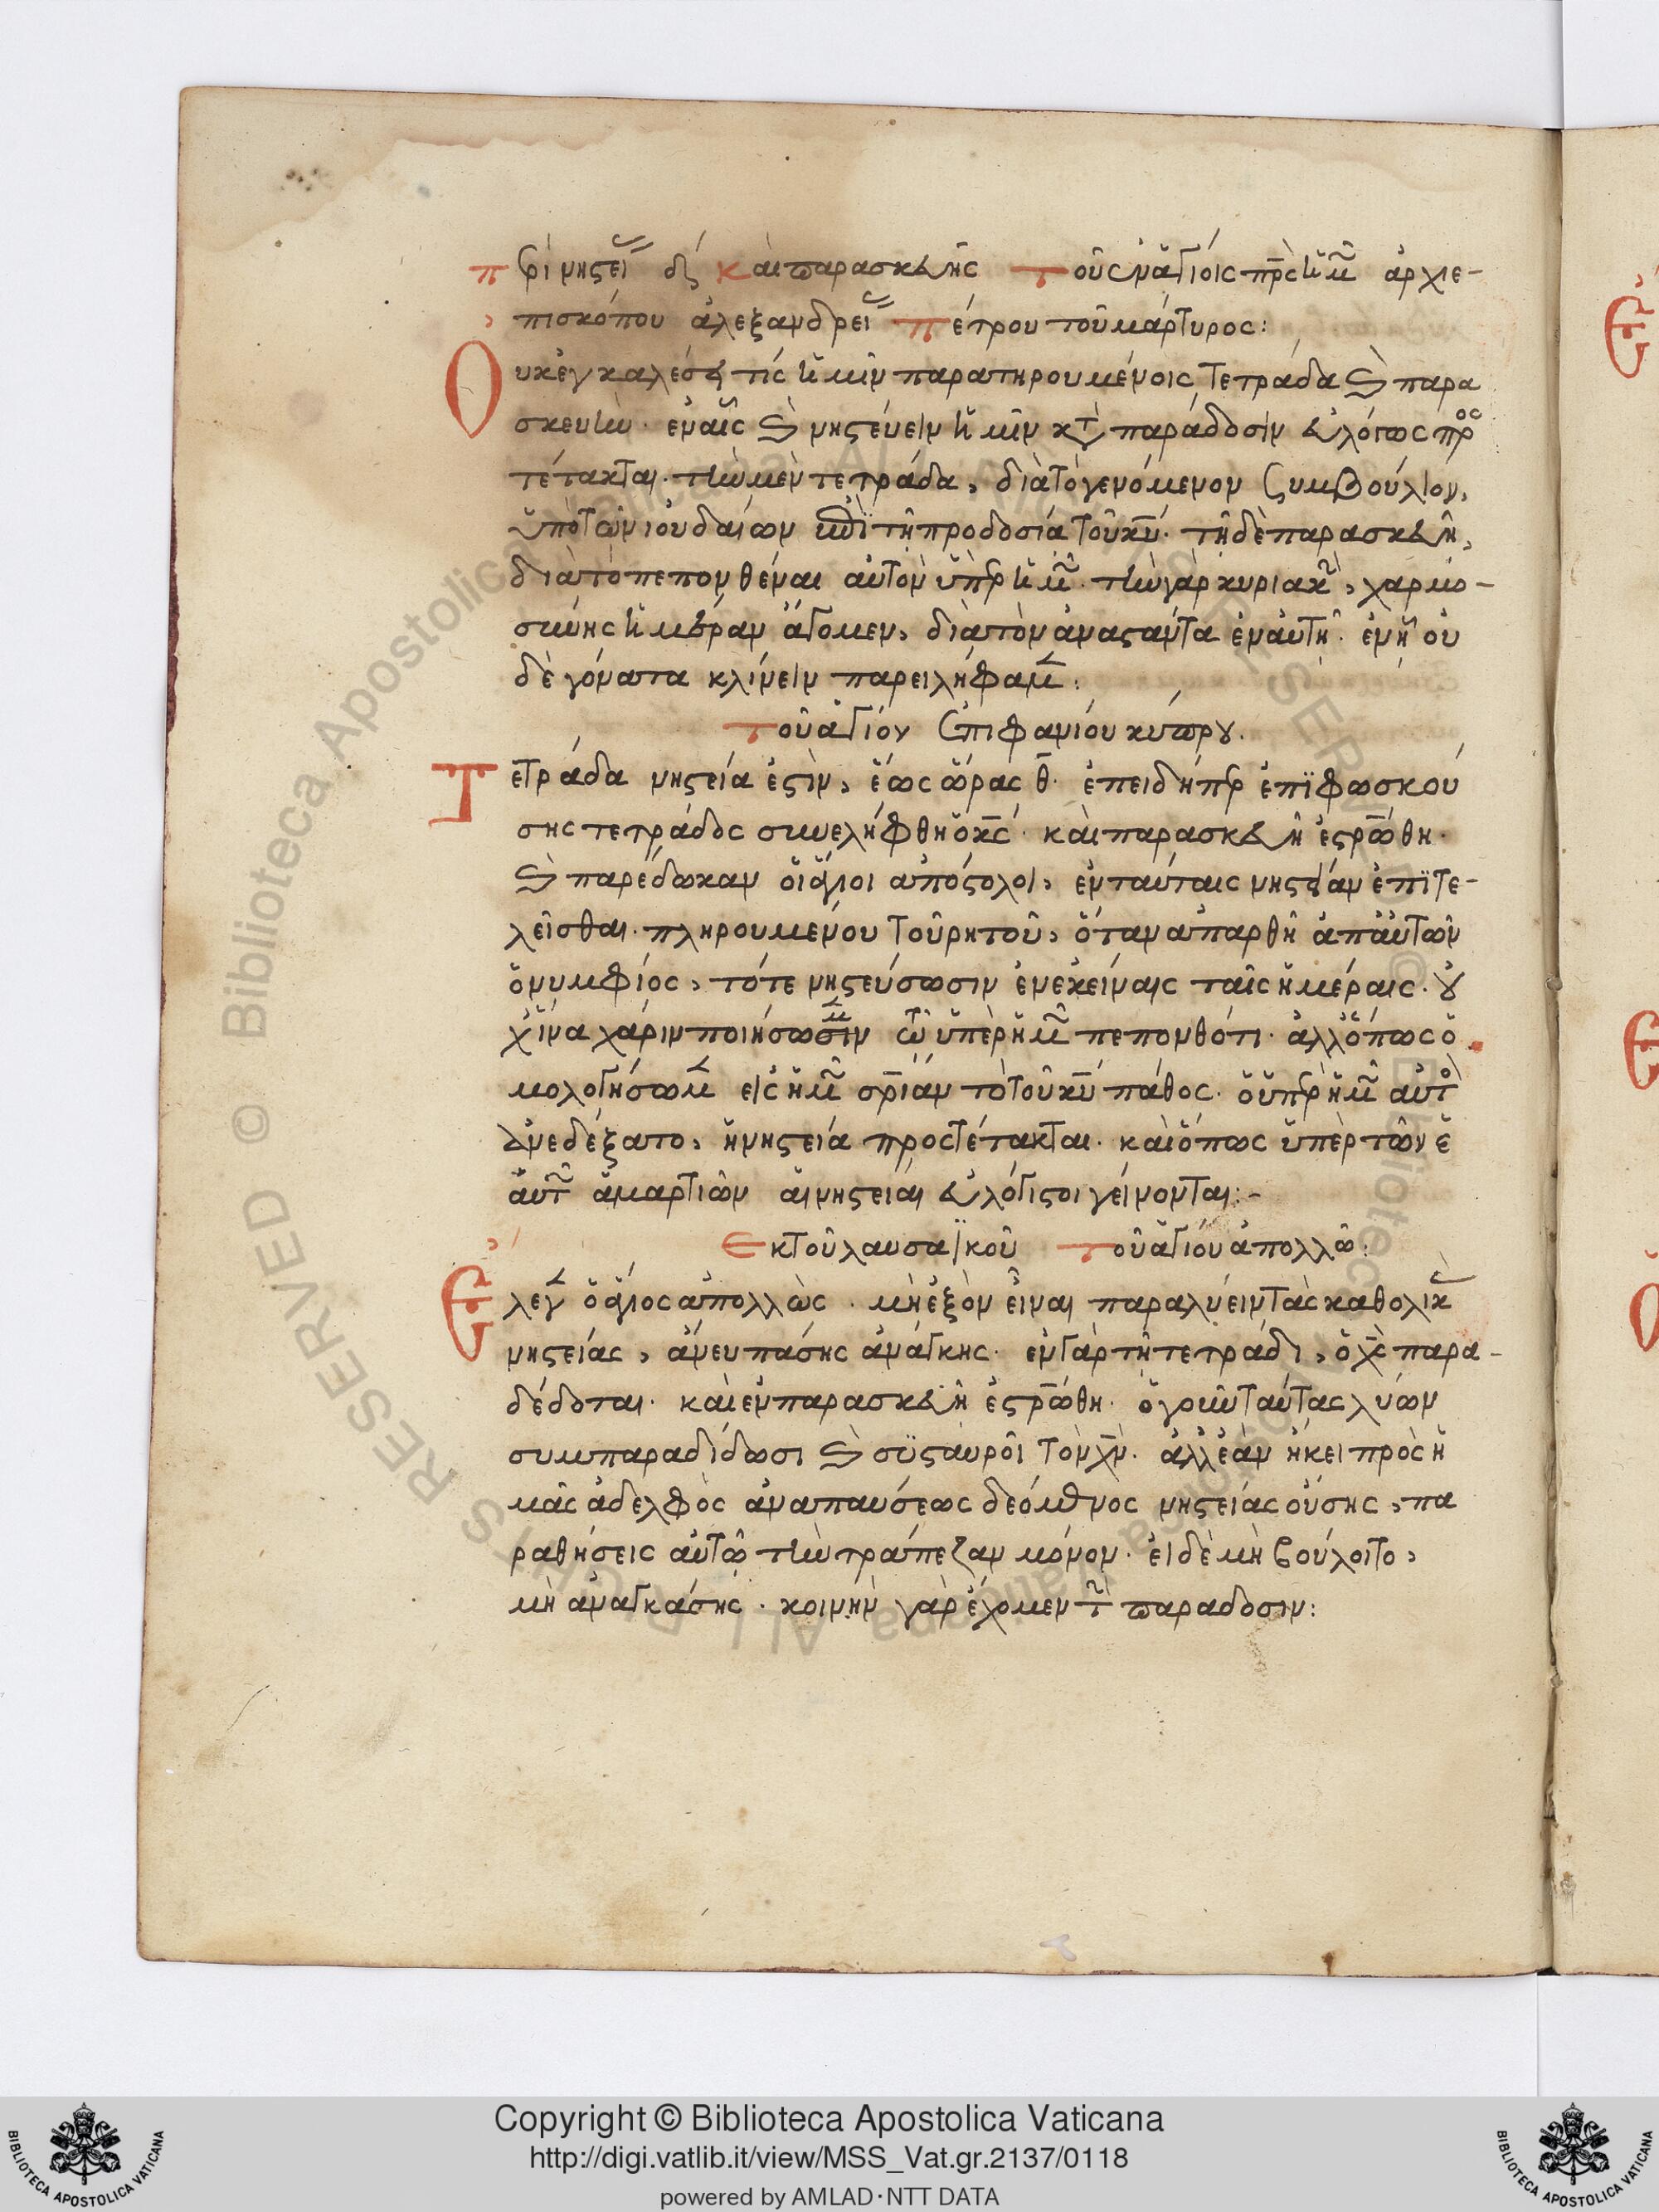 περὶ νηστεί(ας) δ΄ς καὶ παρασκευῆς τοῦ ἐν ἁγίοις πρς ἡμ ἀρχιε-
πισκόπου ἀλεξανδρεί πέτρου τοῦ μάρτυρος:
Οὐκ ἐγκαλέσει τίς ἡμῖν παρατηρουμένοις τετράδα καὶ παρα
σκευήν· ἐν αἷς καὶ νηστεύειν ἡμῖν κατὰ παράδοσιν εὐλόγως προς
τέτακται· τὴν μὲν τετράδα, διὰ τὸ γενόμενον συμβούλιον,
ὑπὸ τῶν ἰουδαίων ἐπὶ τῇ προδοσία τοῦ κυ· τῇ δὲ παρασκευῆ,
διὰ τὸ πεπονθέναι αὐτὸν ὑπὲρ ἡμ· τὴν γὰρ κυριακὴν, χαρμο-
σύνης ἡμέραν ἄγομεν, διὰ τὸν ἀναστάντα ἐν αὐτῇ· ἐν ᾗ οὐ
δὲ γόνατα κλίνειν παρειλήφαμεν:
τοῦ ἁγίου ἐπιφανίου κύπρου.
Τετράδα νηστεία ἐστὶν, ἕως ὥρας θ· ἐπειδήπερ ἐπϊφωσκού
σης τετράδος συνελήφθη ὁ κς· καὶ παρασκευῆ ἐστρώθη·
καὶ παρέδωκαν οἱ ἅγιοι ἀπόστολοι, ἐν ταύταις νηστείαν ἐπϊτε-
λεῖσθαι· πληρουμένου τοῦ ρητοῦ, ὅταν ἀπαρθῆ ἀπ αὐτῶν
ὁ νυμφίος, τότε νηστεύσωσιν ἐν ἐκείναις ταῖς ἡμέραις· οὐ
χ ἵνα χάριν ποιήσωσιν τῷ ὑπὲρ ἡμ πεπονθότι· ἀλλ ὅπως ὁ
μολογήσωμεν εἰς ἡμ σριαν τὸ τοῦ κυ πάθος· ὃ ὑπὲρ ἡμ αὐτὸς
ἀνεδέξατο, ἡ νηστεία προστέτακται· καὶ ὅπως ὑπὲρ τῶν ἑ
αυτῶν ἁμαρτιῶν αἱ νηστεῖαι εὐλόγιστοι γείνονται:-
Εκ τοῦ λαυσαϊκοῦ τοῦ ἁγίου ἀπολλῶ:
Ελεγεν ὁ ἅγιος ἀπολλὼς· μὴ ἐξὸν εἶναι παραλύειν τὰς καθολικὰς
νηστείας, ἄνευ πάσης ἀνάγκης· ἐν γὰρ τῇ τετράδι, ὁ χς παρα-
δέδοται· καὶ ἐν παρασκευῆ ἐστρώθη· ὁ γοῦν ταύτας λύων
συμπαραδίδωσι καὶ συσταυροῖ τὸν χν· ἀλλ ἐὰν ἥκει πρὸς ἡ
μᾶς ἀδελφὸς ἀναπαύσεως δεόμενος νηστείας οὔσης, πα
ραθήσεις αὐτῶ τὴν τράπεζαν μόνον· εἰ δὲ μὴ βούλοιτο,
μὴ ἀναγκάσης· κοινὴν γὰρ ἔχομεν τὴν παράδοσιν:
Copyright © Biblioteca Apostolica Vaticana
http://digi.vatlib.it/view/MSS_Vat.gr.2137/0118
powered by AMLAD·NTT DATA
BIBLIOTECA APOSTOLICA VATICANA
BIBLIOTECA APOSTOLICA VATICANA
© Biblioteca Apostolica Vaticana ALL RIGHTS RESERVED